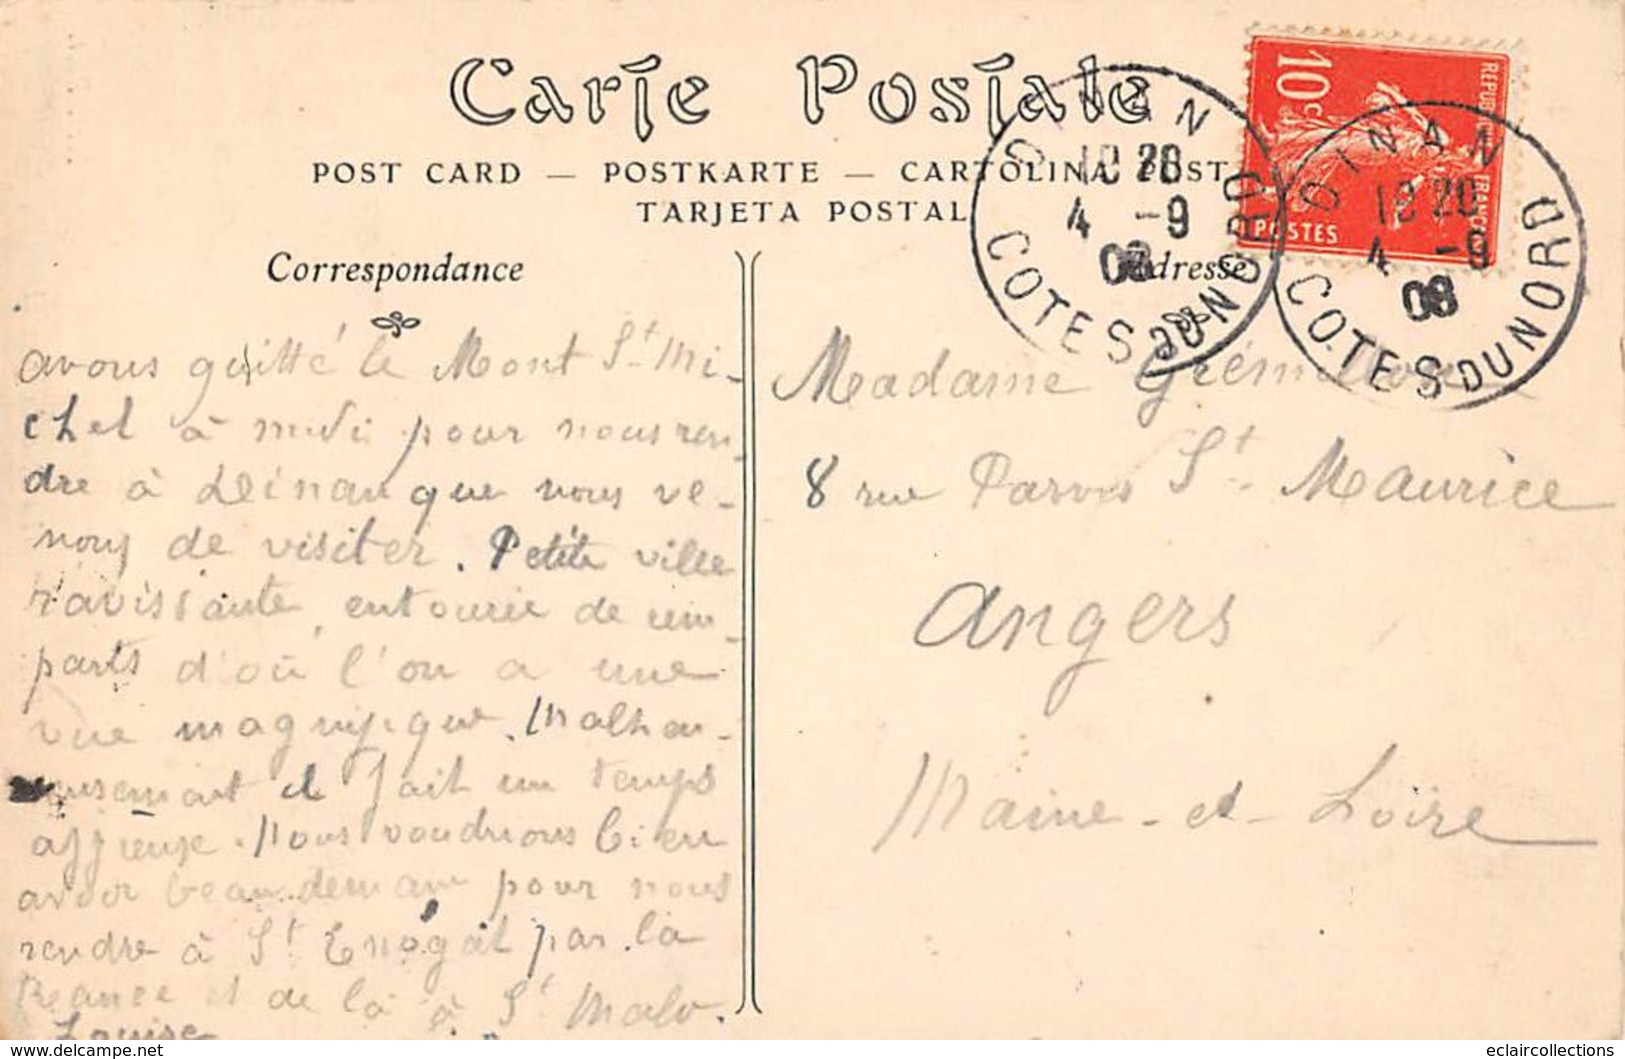 Carte Postale
POST CARD — POSTKARTE — CARTOLINA POST
TARJETA POSTAL
Correspondance
Adresse
REPUBLIQUE FRANÇAISE
10c
POSTES
DINAN
12 20
4 -9
08
COTES DU NORD
DINAN
12 20
4 -9
08
COTES DU NORD
avons quitté le Mont St-Mi-
chel à midi pour nous ren-
dre à Dinan que nous ve-
nons de visiter. Petite ville
ravissante, entourée de rem-
parts d'où l'on a une
vue magnifique. Malheu-
reusement il fait un temps
affreux. Nous voudrions bien
avoir beau demain pour nous
rendre à St Enogat par la
Rance et de là à St Malo.
Louise
Madame
8 rue Parvis St-Maurice
Angers
Maine-et-Loire
eclaircollections